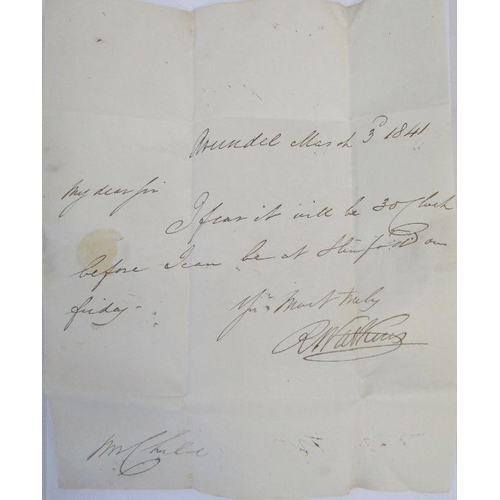 Arundel March 3d 1841
My dear Sir
I fear it will be 3 o Clock
before I can be at on
friday -
Yrs Most truly
R Watkins
Mr Child